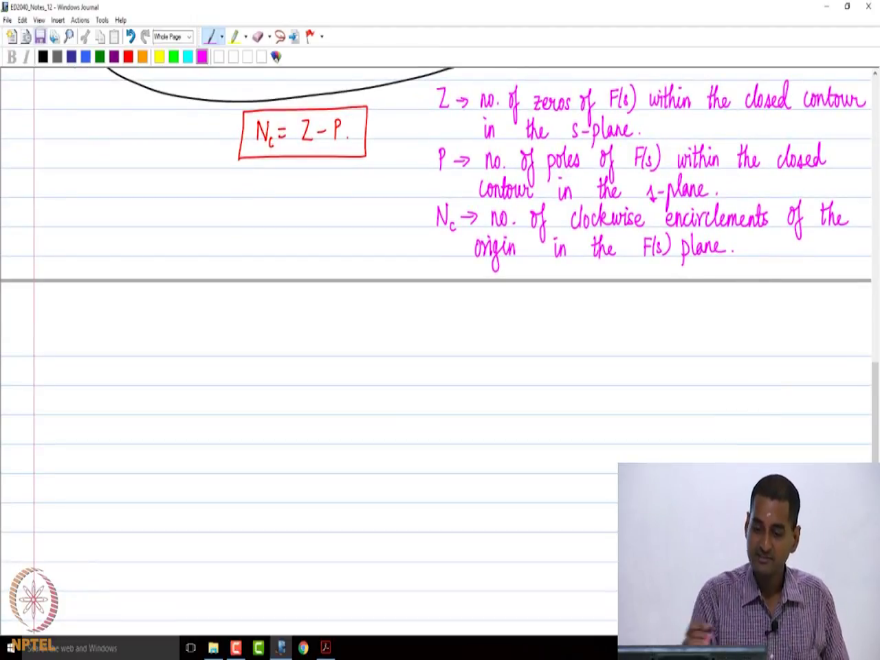 ED2040_Notes_12 - Windows Journal
File Edit View Insert Actions Tools Help
Whole Page
B I
Z → no. of zeros of F(s) within the closed contour
in the s-plane.
N_c = Z - P.
P → no. of poles of F(s) within the closed
contour in the s-plane.
N_c → no. of clockwise encirclements of the
origin in the F(s) plane.
NPTEL
the web and Windows